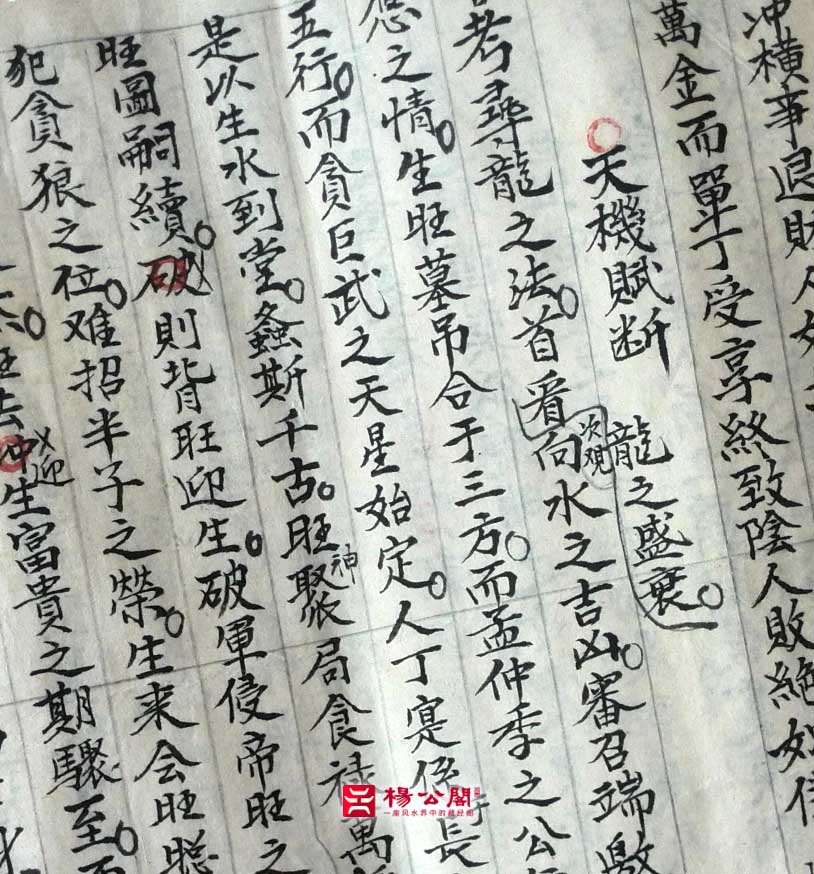 冲橫事退財人
萬金而單丁受享終致陰人敗絕如
天機賦斷
考尋龍之法。首看龍之盛衰。次观向水之吉凶。審召端
之情。生旺墓吊合于三方。而孟仲季之公
五行。而貪巨武之天星始定。人丁寔係長
是以生水到堂。螽斯千古。旺神聚局食禄萬
旺圖嗣續。破則背旺迎生。破軍侵帝旺之
犯貪狼之位。难招半子之榮。生来会旺聪
旺去迎生富貴之期驟至。而
楊公閣